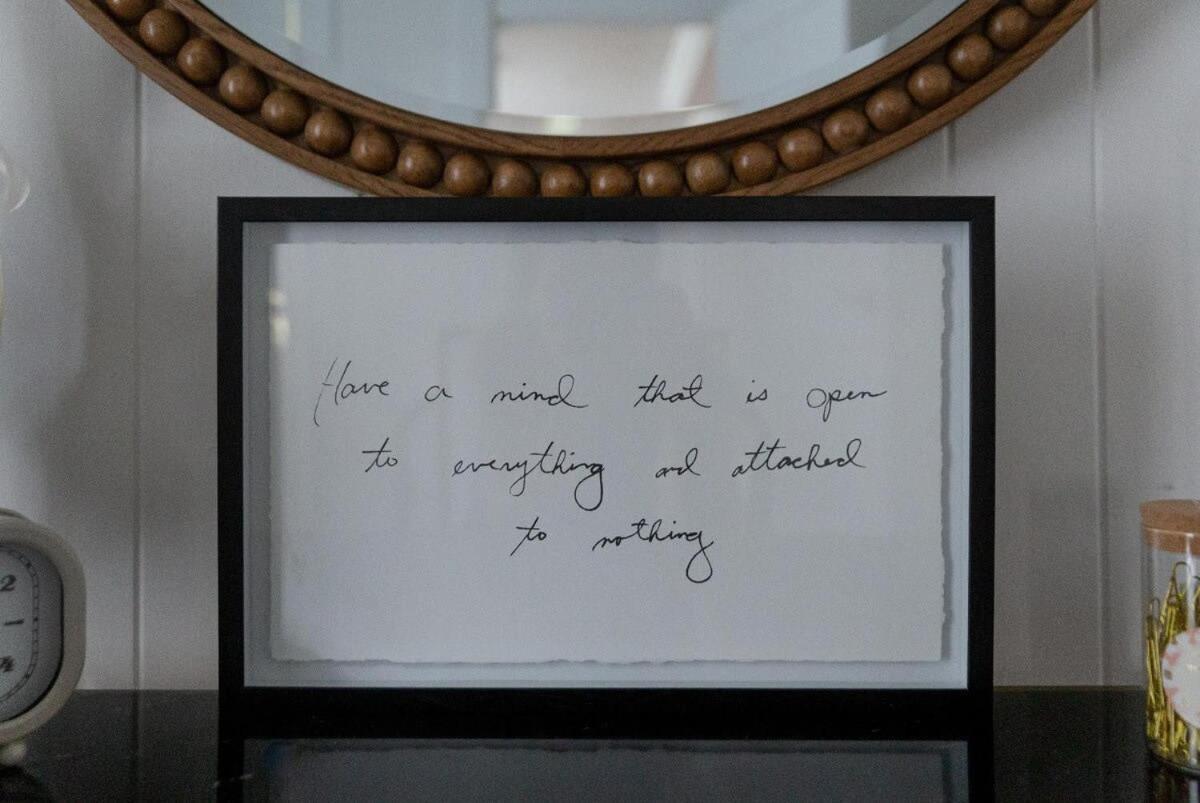 Have a mind that is open
to everything and attached
to nothing
2